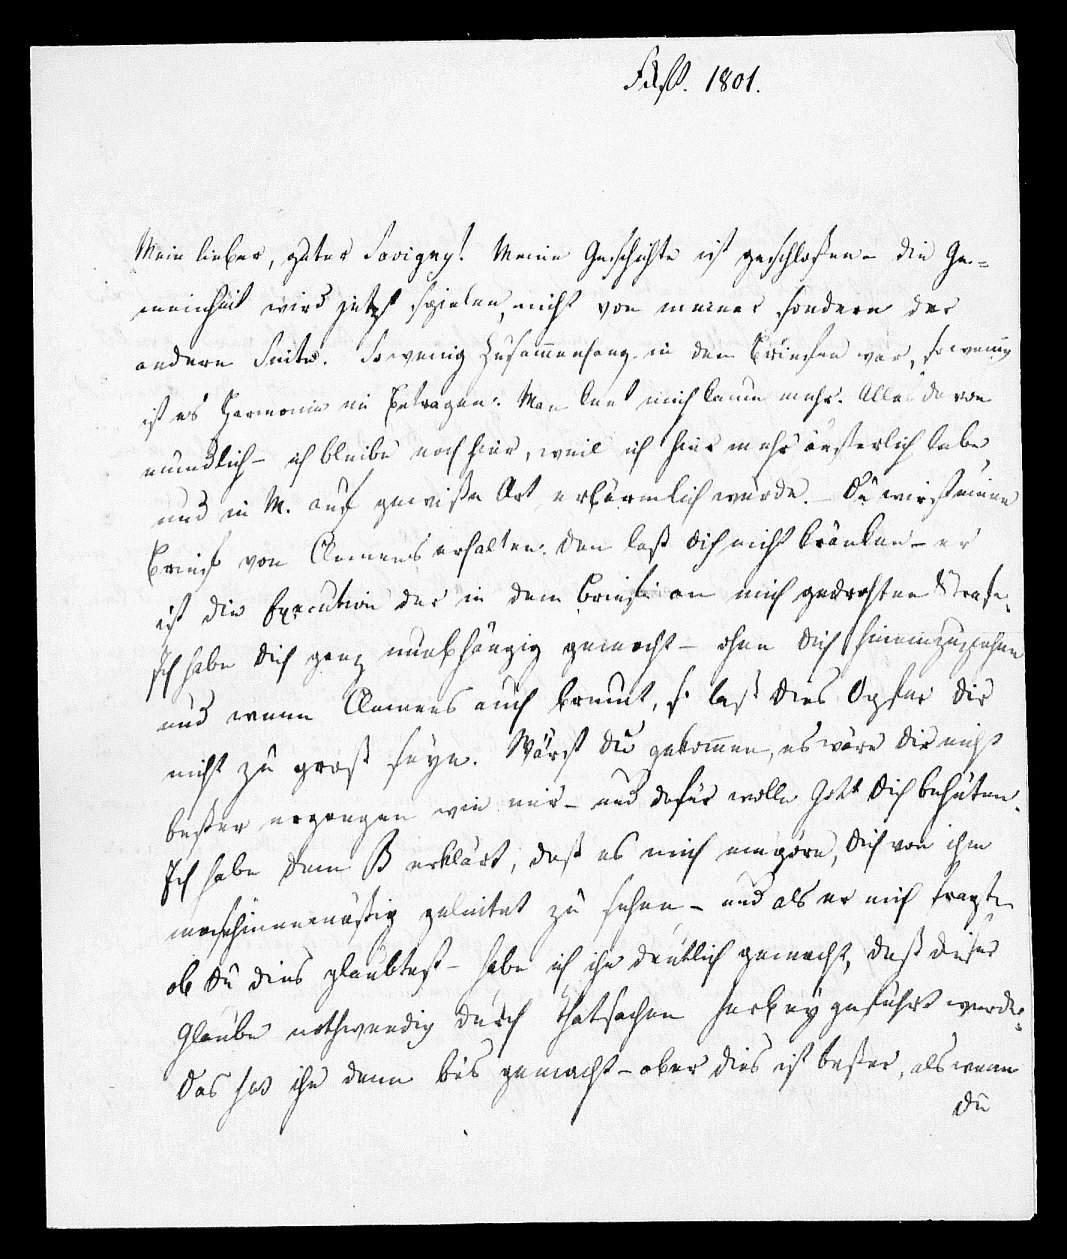 1801.
Mein lieber, guter Savigny! Meine Geschichte ist geschloßen – die Ge-
meinheit wird jetzt spielen, nicht von meiner sondern der
andern Seite. So wenig Zusammenhang in den Briefen war, so wenig
ist es Harmonie im Betragen. Man kent mich kaum mehr. Alles davon
mündlich – ich bleibe noch hier, weil ich hier mehr äusserlich lebe,
und in M. auf gewiße Art erbärmlich würde. – Du wirst einen
Brief von Clemens erhalten. Den laß dich nicht kränken – er
ist die Execution der in dem Briefe an mich gedrohten Strafe.
Ich habe dich ganz unabhängig gemacht – ohne dich hineinzuziehen
und wenn Clemens auch brumt, so laß dies Opfer dir
nicht zu groß seyn. Wärst du gekommen, es wäre dir nicht
beßer ergangen wie mir – und dafür wolle Gott dich behüten.
Ich habe dem B erklärt, daß es mich empöre, dich von ihm
maschinenmäßig geleitet zu sehen – und als er mich fragte
ob du dies glaubtest – habe ich ihm deutlich gemacht, daß dieser
Glaube nothwendig durch Thatsachen herbey geführt werde.
Das hat ihn denn bös gemacht – aber dies ist beßer, als wenn
du